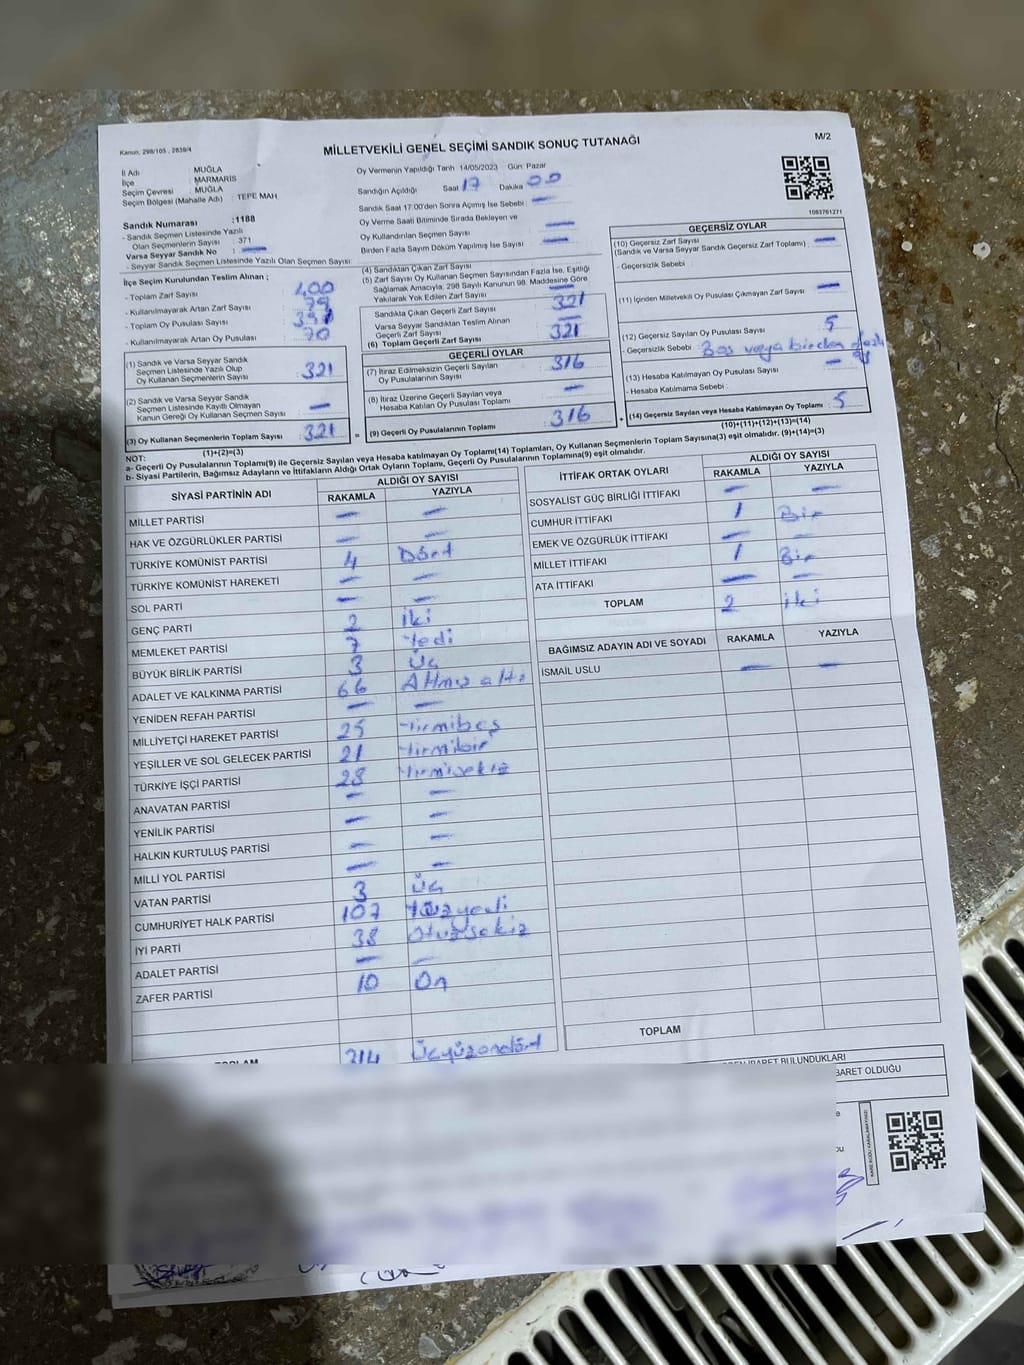 Kanun, 298/105 , 2839/4
MİLLETVEKİLİ GENEL SEÇİMİ SANDIK SONUÇ TUTANAĞI
M/2
İl Adı : MUĞLA
İlçe : MARMARİS
Seçim Çevresi : MUĞLA
Seçim Bölgesi (Mahalle Adı) : TEPE MAH
Sandık Numarası :1188
- Sandık Seçmen Listesinde Yazılı
Olan Seçmenlerin Sayısı : 371
Varsa Seyyar Sandık No : —
- Seyyar Sandık Seçmen Listesinde Yazılı Olan Seçmen Sayısı:
Oy Vermenin Yapıldığı Tarih 14/05/2023 Gün: Pazar
Sandığın Açıldığı Saat 17 Dakika 00
Sandık Saat 17:00'den Sonra Açımış İse Sebebi : —
Oy Verme Saati Bitiminde Sırada Bekleyen ve
Oy Kullandırılan Seçmen Sayısı —
Birden Fazla Sayım Döküm Yapılmış İse Sayısı —
1083761271
İlçe Seçim Kurulundan Teslim Alınan ;
- Toplam Zarf Sayısı : 400
- Kullanılmayarak Artan Zarf Sayısı : 79
- Toplam Oy Pusulası Sayısı
- Kullanılmayarak Artan Oy Pusulası : 70
(1) Sandık ve Varsa Seyyar Sandık
Seçmen Listesinde Yazılı Olup
Oy Kullanan Seçmenlerin Sayısı : 321
(2) Sandık ve Varsa Seyyar Sandık
Seçmen Listesinde Kayıtlı Olmayan
Kanun Gereği Oy Kullanan Seçmen Sayısı : —
(3) Oy Kullanan Seçmenlerin Toplam Sayısı : 321
(1)+(2)=(3)
(4) Sandıktan Çıkan Zarf Sayısı
(5) Zarf Sayısı Oy Kullanan Seçmen Sayısından Fazla İse, Eşitliği
Sağlamak Amacıyla, 298 Sayılı Kanunun 98. Maddesine Göre
Yakılarak Yok Edilen Zarf Sayısı : —
Sandıkta Çıkan Geçerli Zarf Sayısı : 321
Varsa Seyyar Sandıktan Teslim Alınan
Geçerli Zarf Sayısı : —
(6) Toplam Geçerli Zarf Sayısı : 321
GEÇERLİ OYLAR
(7) İtiraz Edilmeksizin Geçerli Sayılan
Oy Pusulalarının Sayısı : 316
(8) İtiraz Üzerine Geçerli Sayılan veya
Hesaba Katılan Oy Pusulası Toplamı : —
= (9) Geçerli Oy Pusulalarının Toplamı : 316
GEÇERSİZ OYLAR
(10) Geçersiz Zarf Sayısı : —
(Sandık ve Varsa Seyyar Sandık Geçersiz Zarf Toplamı)
- Geçersizlik Sebebi :
(11) İçinden Milletvekili Oy Pusulası Çıkmayan Zarf Sayısı : —
(12) Geçersiz Sayılan Oy Pusulası Sayısı : 5
- Geçersizlik Sebebi : Boş veya birden fazla
oy
(13) Hesaba Katılmayan Oy Pusulası Sayısı : —
- Hesaba Katılmama Sebebi :
+ (14) Geçersiz Sayılan veya Hesaba Katılmayan Oy Toplamı : 5
(10)+(11)+(12)+(13)=(14)
NOT:
a- Geçerli Oy Pusulalarının Toplamı(9) ile Geçersiz Sayılan veya Hesaba katılmayan Oy Toplamı(14) Toplamları, Oy Kullanan Seçmenlerin Toplam Sayısına(3) eşit olmalıdır. (9)+(14)=(3)
b- Siyasi Partilerin, Bağımsız Adayların ve İttifakların Aldığı Ortak Oyların Toplamı, Geçerli Oy Pusulalarının Toplamına(9) eşit olmalıdır.
SİYASİ PARTİNİN ADI ALDIĞI OY SAYISI
RAKAMLA YAZIYLA
MİLLET PARTİSİ — —
HAK VE ÖZGÜRLÜKLER PARTİSİ — —
TÜRKİYE KOMÜNİST PARTİSİ 4 Dört
TÜRKİYE KOMÜNİST HAREKETİ — —
SOL PARTİ — —
GENÇ PARTİ 2 iki
MEMLEKET PARTİSİ 7 Yedi
BÜYÜK BİRLİK PARTİSİ 3 Üç
ADALET VE KALKINMA PARTİSİ 66 Altmış altı
YENİDEN REFAH PARTİSİ — —
MİLLİYETÇİ HAREKET PARTİSİ 25 Yirmibeş
YEŞİLLER VE SOL GELECEK PARTİSİ 21 Yirmibir
TÜRKİYE İŞÇİ PARTİSİ 28 Yirmisekiz
ANAVATAN PARTİSİ — —
YENİLİK PARTİSİ — —
HALKIN KURTULUŞ PARTİSİ — —
MİLLİ YOL PARTİSİ — —
VATAN PARTİSİ 3 Üç
CUMHURİYET HALK PARTİSİ 107 Yüzyedi
İYİ PARTİ 38 Otuzsekiz
ADALET PARTİSİ — —
ZAFER PARTİSİ 10 On
TOPLAM 314 Üçyüzondört
İTTİFAK ORTAK OYLARI ALDIĞI OY SAYISI
RAKAMLA YAZIYLA
SOSYALİST GÜÇ BİRLİĞİ İTTİFAKI — —
CUMHUR İTTİFAKI 1 Bir
EMEK VE ÖZGÜRLÜK İTTİFAKI — —
MİLLET İTTİFAKI 1 Bir
ATA İTTİFAKI — —
TOPLAM 2 iki
BAĞIMSIZ ADAYIN ADI VE SOYADI RAKAMLA YAZIYLA
İSMAİL USLU — —
TOPLAM
İBARET BULUNDUKLARI
BARET OLDUĞU